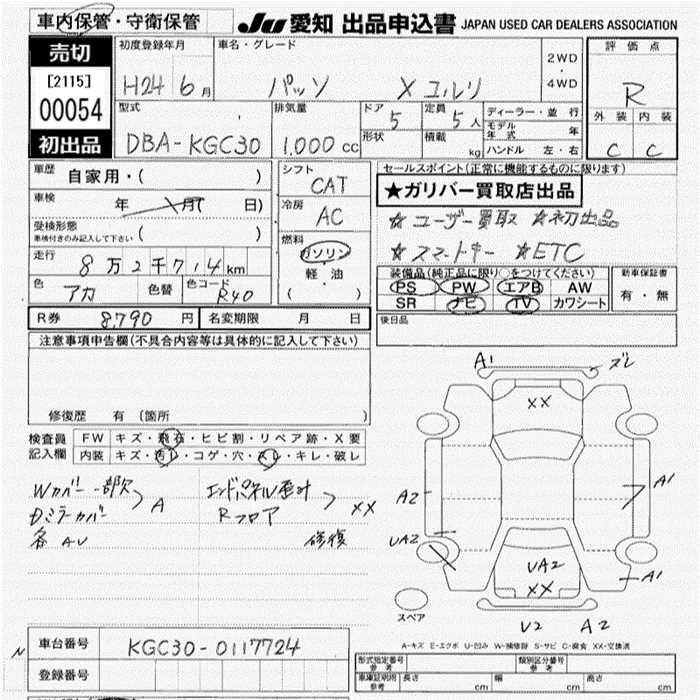 車内保管・守衛保管 JU 愛知 出品申込書 JAPAN USED CAR DEALERS ASSOCIATION
売切 初度登録年月 車名・グレード 2WD ・ 4WD 評価点
[2115] H24 6月 パッソ X ユルリ R
00054 型式 排気量 ドア 5 定員 5人 ディーラー・並行 外装 内装
初出品 DBA-KGC30 1,000cc 形状 積載 kg モデル年式 年 C C
ハンドル 左・右
車歴 自家用・( ) シフト CAT セールスポイント(正常に機能するものに限ります)
車検 年 月( 日) 冷房 AC ★ガリバー買取店出品
受検形態 車検付きのみ記入して下さい ( ) ☆ユーザー買取 ☆初出品
走行 8万2千714km 燃料 ガソリン ☆スマートキー ☆ETC
色 アカ 色替 色コード R40 軽・油 ( ) 装備品(純正品に限り○をつけてください) 新車保証書
PS PW エアB AW 有・無
SR ナビ TV カワシート
R券 8,790円 名変期限 月 日 後日品
注意事項申告欄(不具合内容等は具体的に記入して下さい)
修復歴 有 (箇所 )
検査員記入欄 FW キズ・飛石・ヒビ割・リペア跡・X要
内装 キズ・汚レ・コゲ・穴・スレ・キレ・破レ
Wカバー一部欠 エンドパネル歪汁
Dミラーカバー A Rフロア XX
各AU 修復
A1 ズレ
XX
A2 A1
UA2 UA2 A1
XX
スペア U2 A2
A-キズ E-エクボ U-凹み W-補修跡 S-サビ C-腐食 XX-交換済
車台番号 KGC30-0117724
登録番号
形式指定番号 参考 類別区分番号 参考
車庫証明用 参考 長さ cm 幅 cm 高さ cm